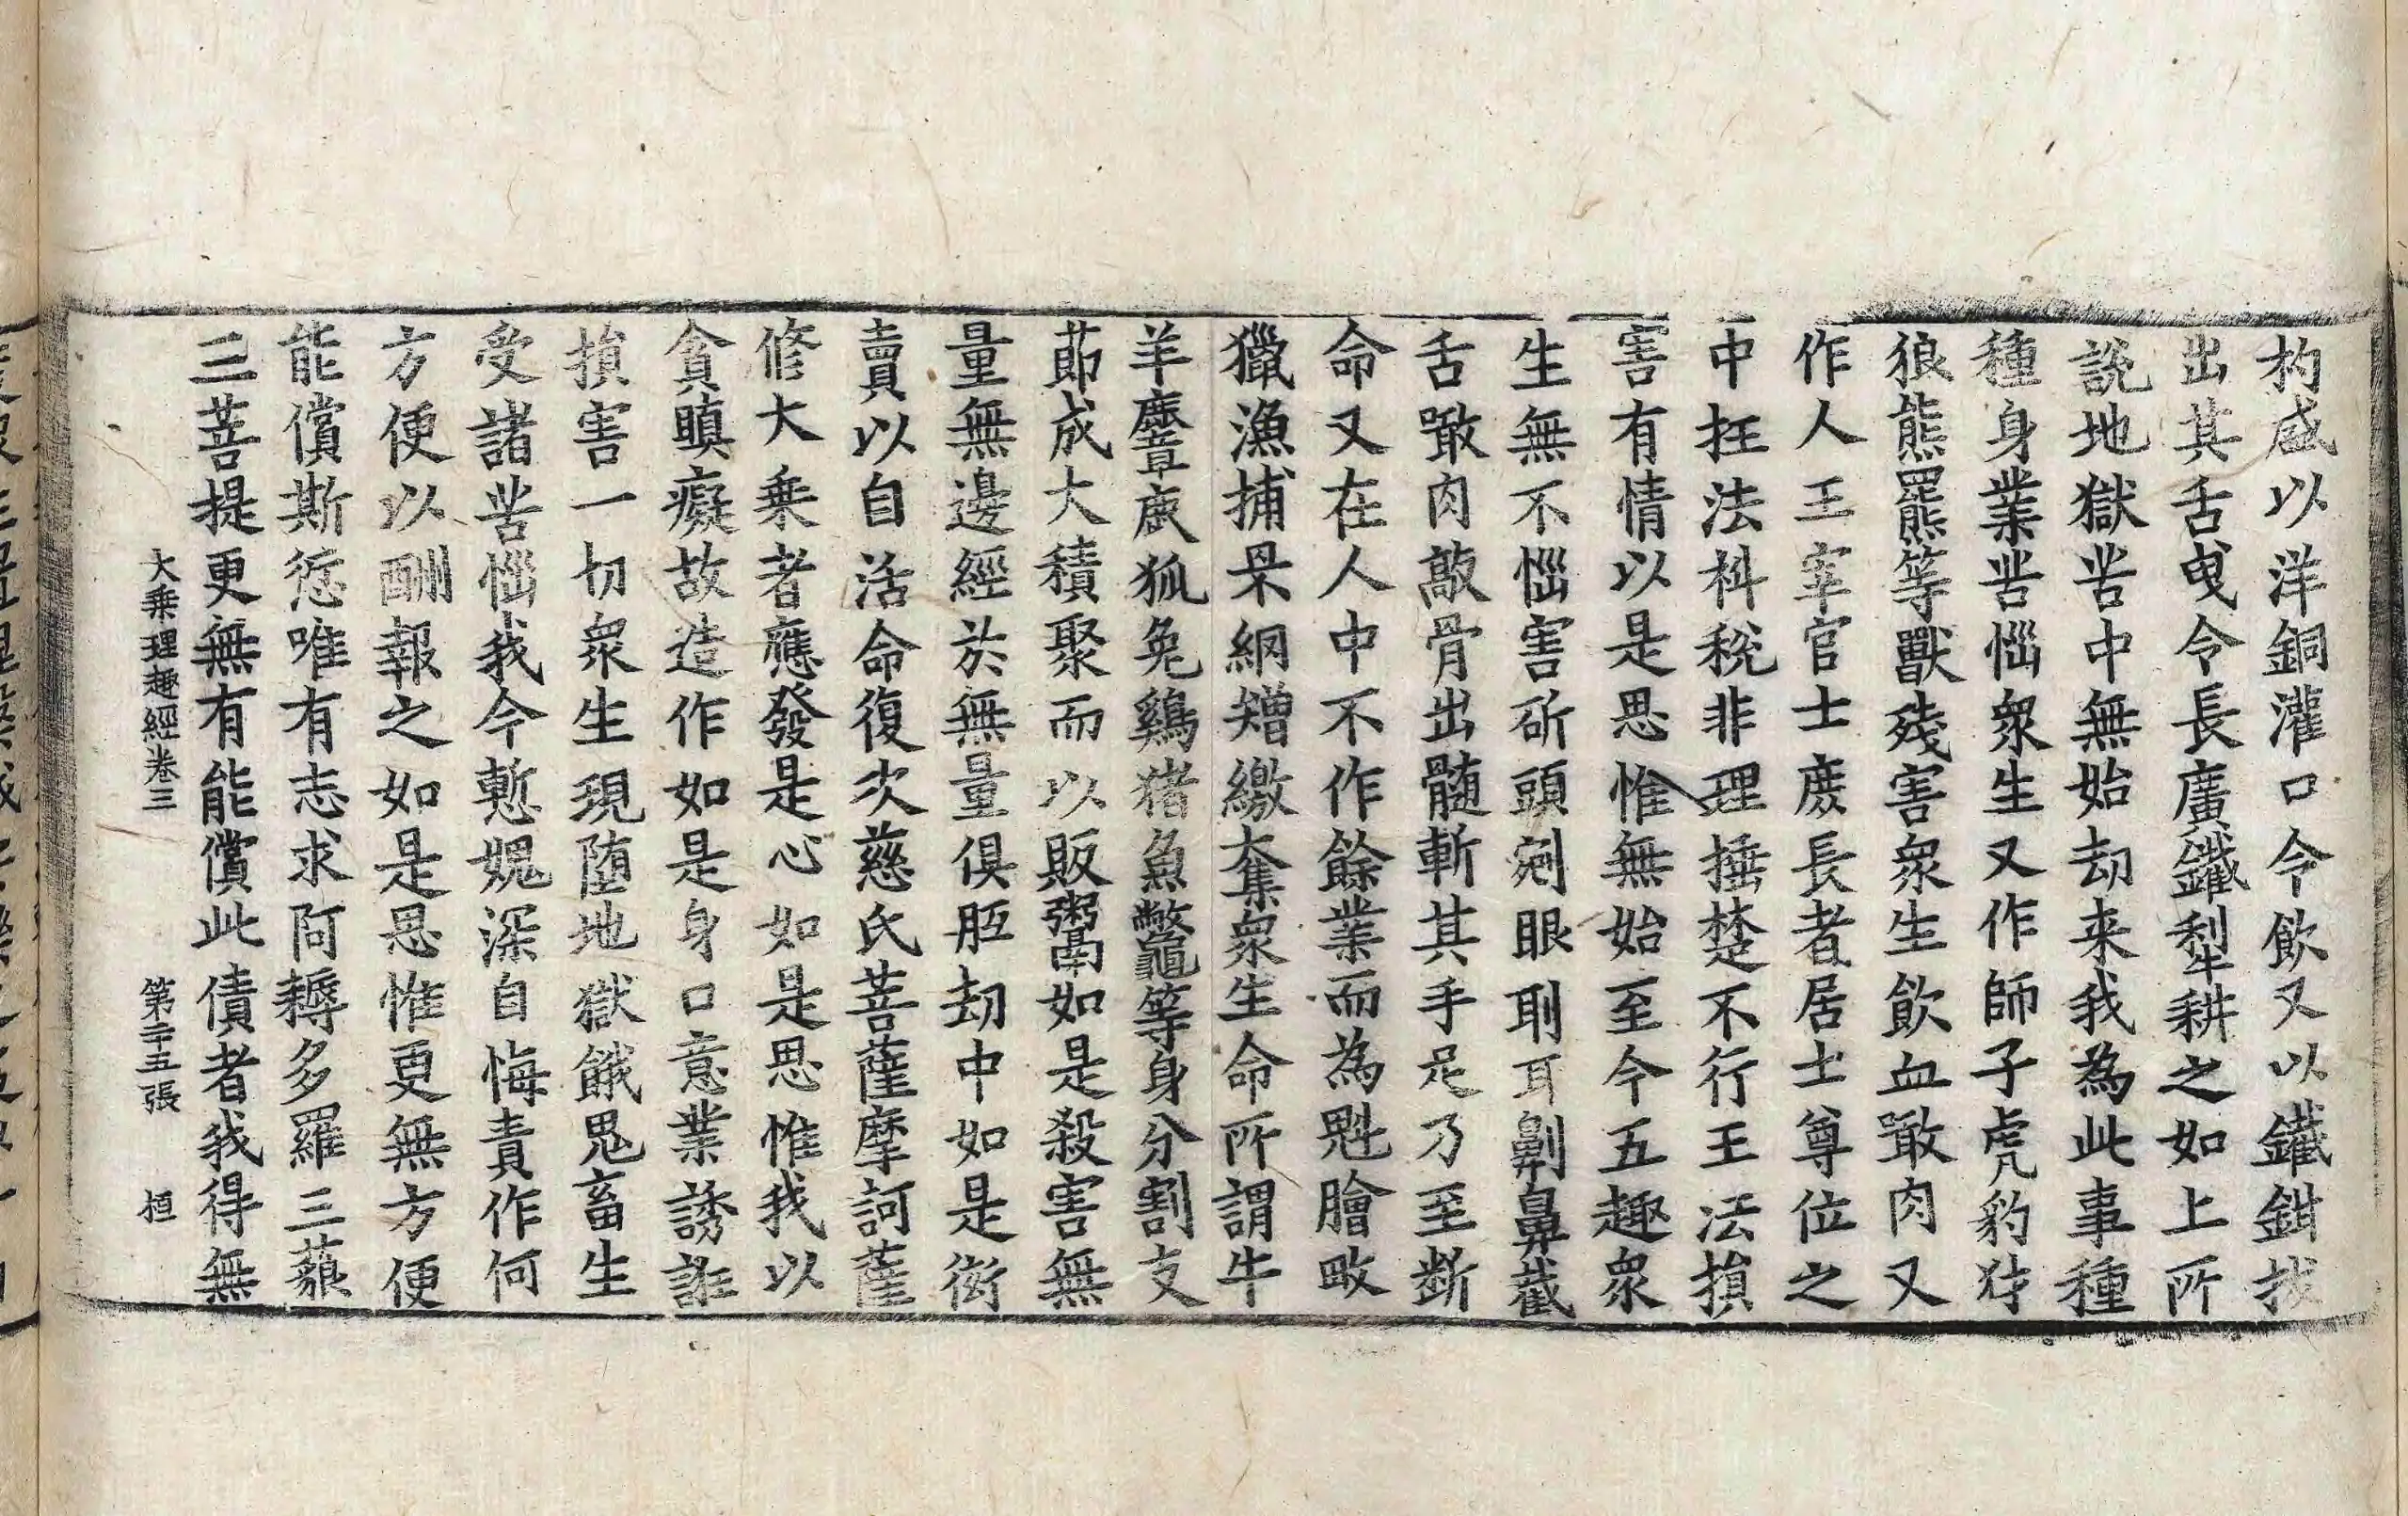 杓盛以洋銅灌口令飲又以鐵鉗拔
出其舌曳令長廣鐵犁耕之如上所
說地獄苦中無始劫来我為此事種
種身業苦惱衆生又作師子虎豹犲
狼熊羆等獸殘害衆生飲血噉肉又
作人王宰官士庶長者居士尊位之
中抂法科稅非理捶楚不行王法損
害有情以是思惟無始至今五趣衆
生無不惱害斫頭剜眼刵耳劓鼻截
舌噉肉敲骨出髄斬其手足乃至断
命又在人中不作餘業而為魁膾畋
獵漁捕罘網矰繳奪衆生命所謂牛
羊麞鹿狐兔鷄猪魚鼈等身分割支
莭成大積聚而以販鬻如是殺害無
量無邊經於無量俱胝劫中如是衒
賣以自活命復次慈氏菩薩摩訶薩
修大乘者應發是心如是思惟我以
貪瞋癡故造作如是身口意業誘誑
損害一切衆生現墮地獄餓鬼畜生
受諸苦惱我今慙媿深自悔責作何
方便以酬報之如是思惟更無方便
能償斯愆唯有志求阿耨多羅三藐
三菩提更無有能償此債者我得無
大乘理趣經卷三 第二十五張 桓